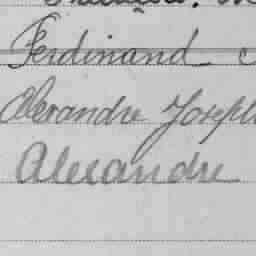 Ferdinand
Alexandre Joseph
Alexandre